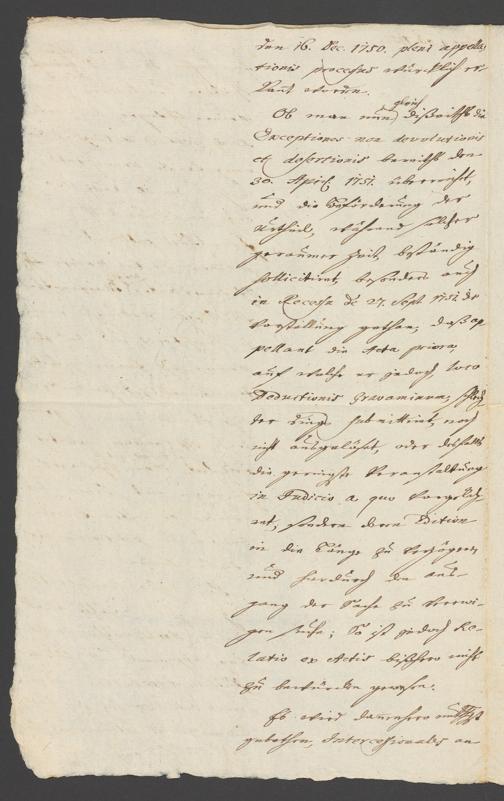 den 16. Dec. 1750. pleni appella-
tionis processus würcklich er-
kant worden.
Ob man nun gleich disseiths die
Exceptiones non devolutionis
et desertionis bereits den
30. April 1751. überreichet,
und die Beförderung der
Urtheil, während solcher
geraumer Zeit, beständig
sollicitiret, besonders auch
in Recessu de 27. Sept 1751 die
Vorstellung gethan, daß ap-
pellant die Acta priora,
auf welche er jedoch, loco
Deductionis Gravaminum, schlech-
ter dings submittiret, noch
nicht ausgelöset, oder deshalb
die geringste Veranstaltung
in Judicio a quo vorgekeh-
ret, sondern deren Edition
in die Länge zu verzögern,
und hierdurch den aus-
gang der Sache zu verewi-
gen suche; So ist jedoch Re-
latio ex Actis bishero nicht
zu bewürcken gewesen.
Es wird dannenhero
gebethen, Intercessionales an